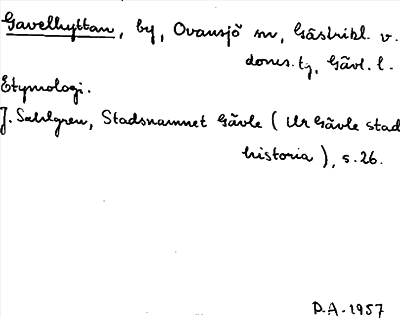 Gavelhyttan, by, Ovansjö sn, Gästrikl. v.
doms. tj, Gävl. l.
Etymologi.
J. Sahlgren, Stadsnamnet Gävle (Ur Gävle stad
historia), s. 26.
D.A. 1957